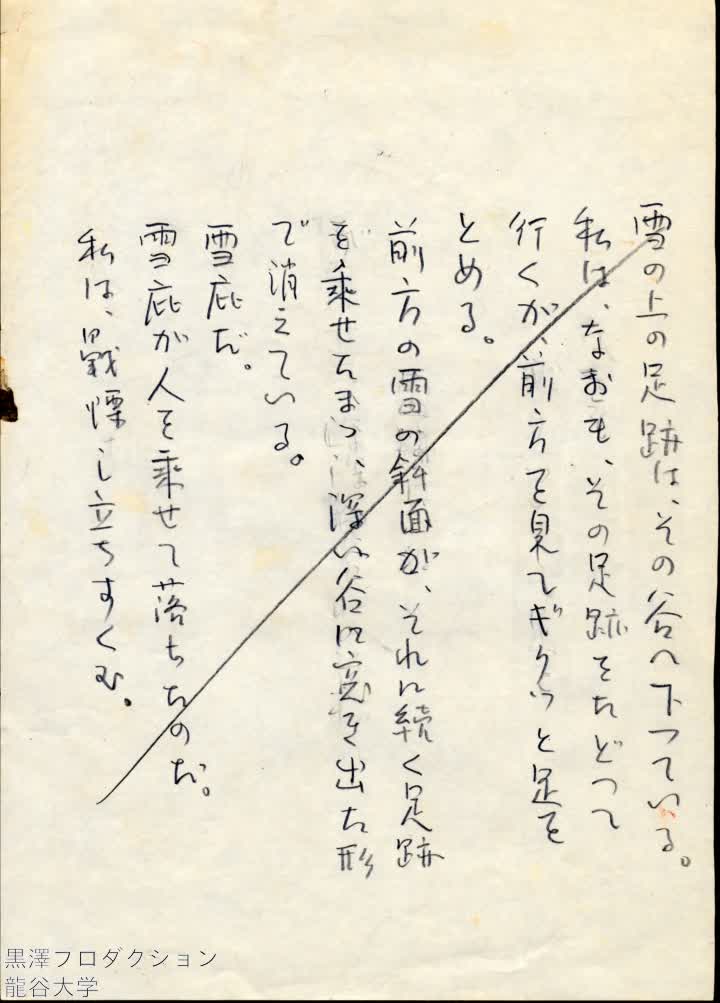 雪の上の足跡は、その谷へ下つている。
私は、なおも、その足跡をたどつて
行くが、前方を見てギクッと足を
とめる。
前方の雪の斜面が、それに続く足跡
を乗せたまゝ、深い谷に突き出た形
で消えている。
雪庇だ。
雪庇が人を乗せて落ちたのだ。
私は、戦慄し立ちすくむ。
黒澤フロダクション
龍谷大学